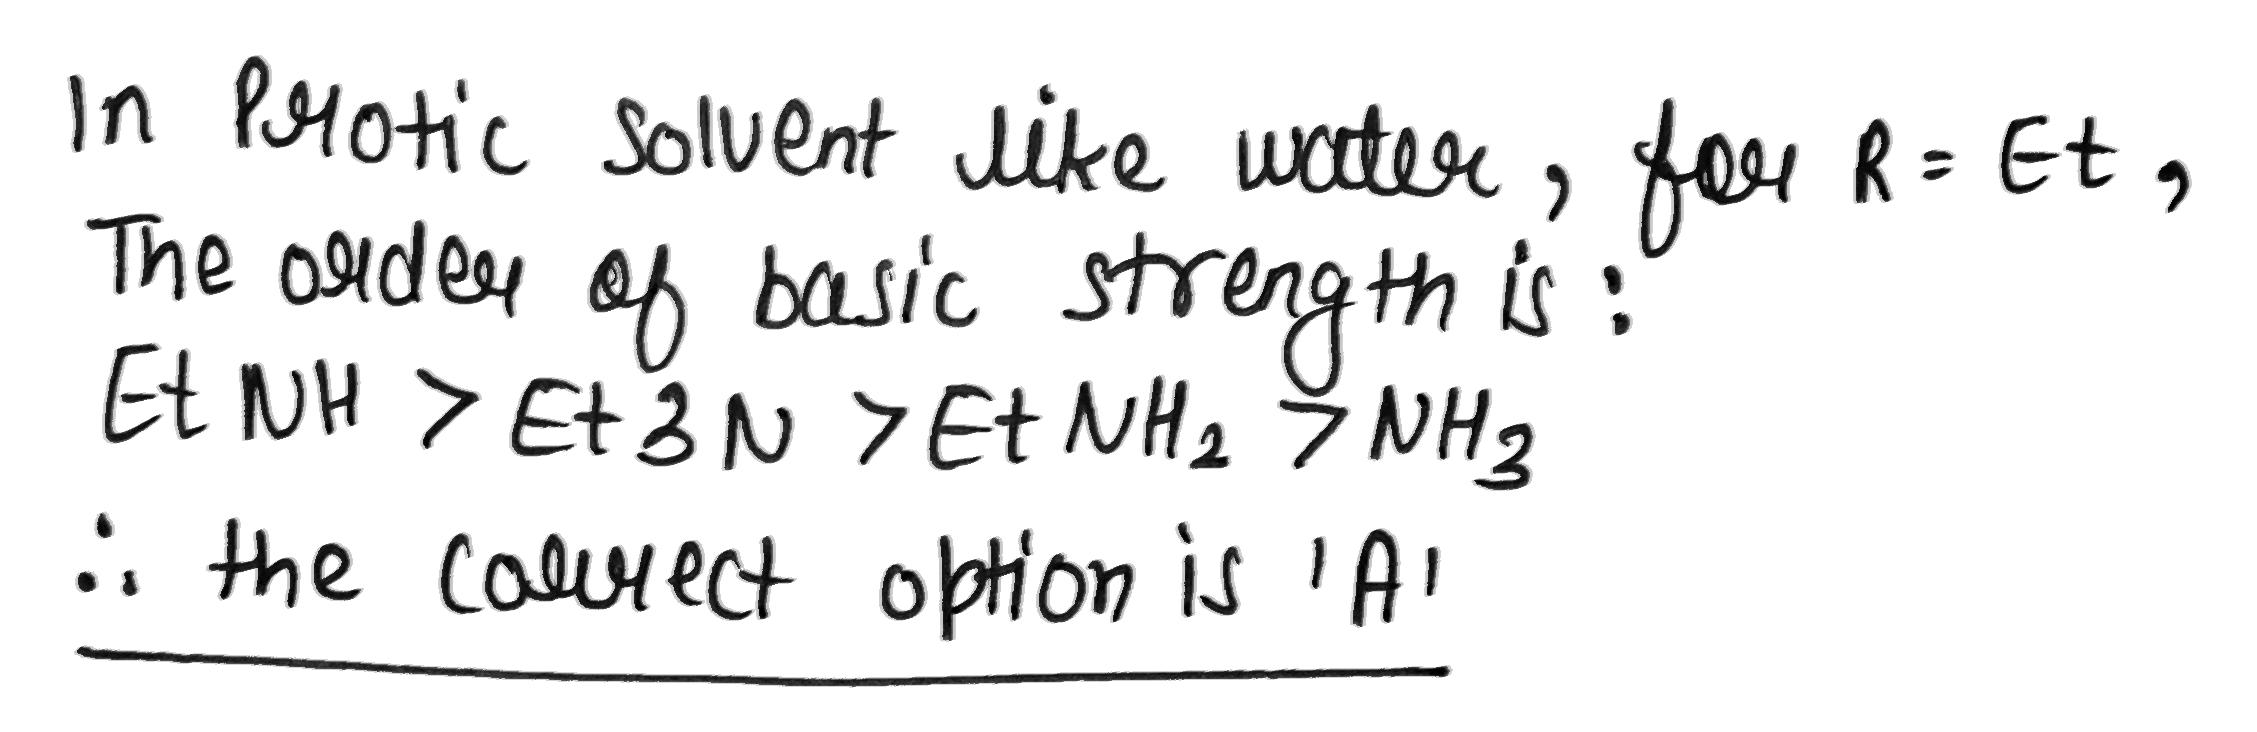 In Protic solvent like water, for R = Et,
The order of basic strength is :
Et NH > Et 3 N > Et NH₂ > NH₃
∴ the correct option is 'A'